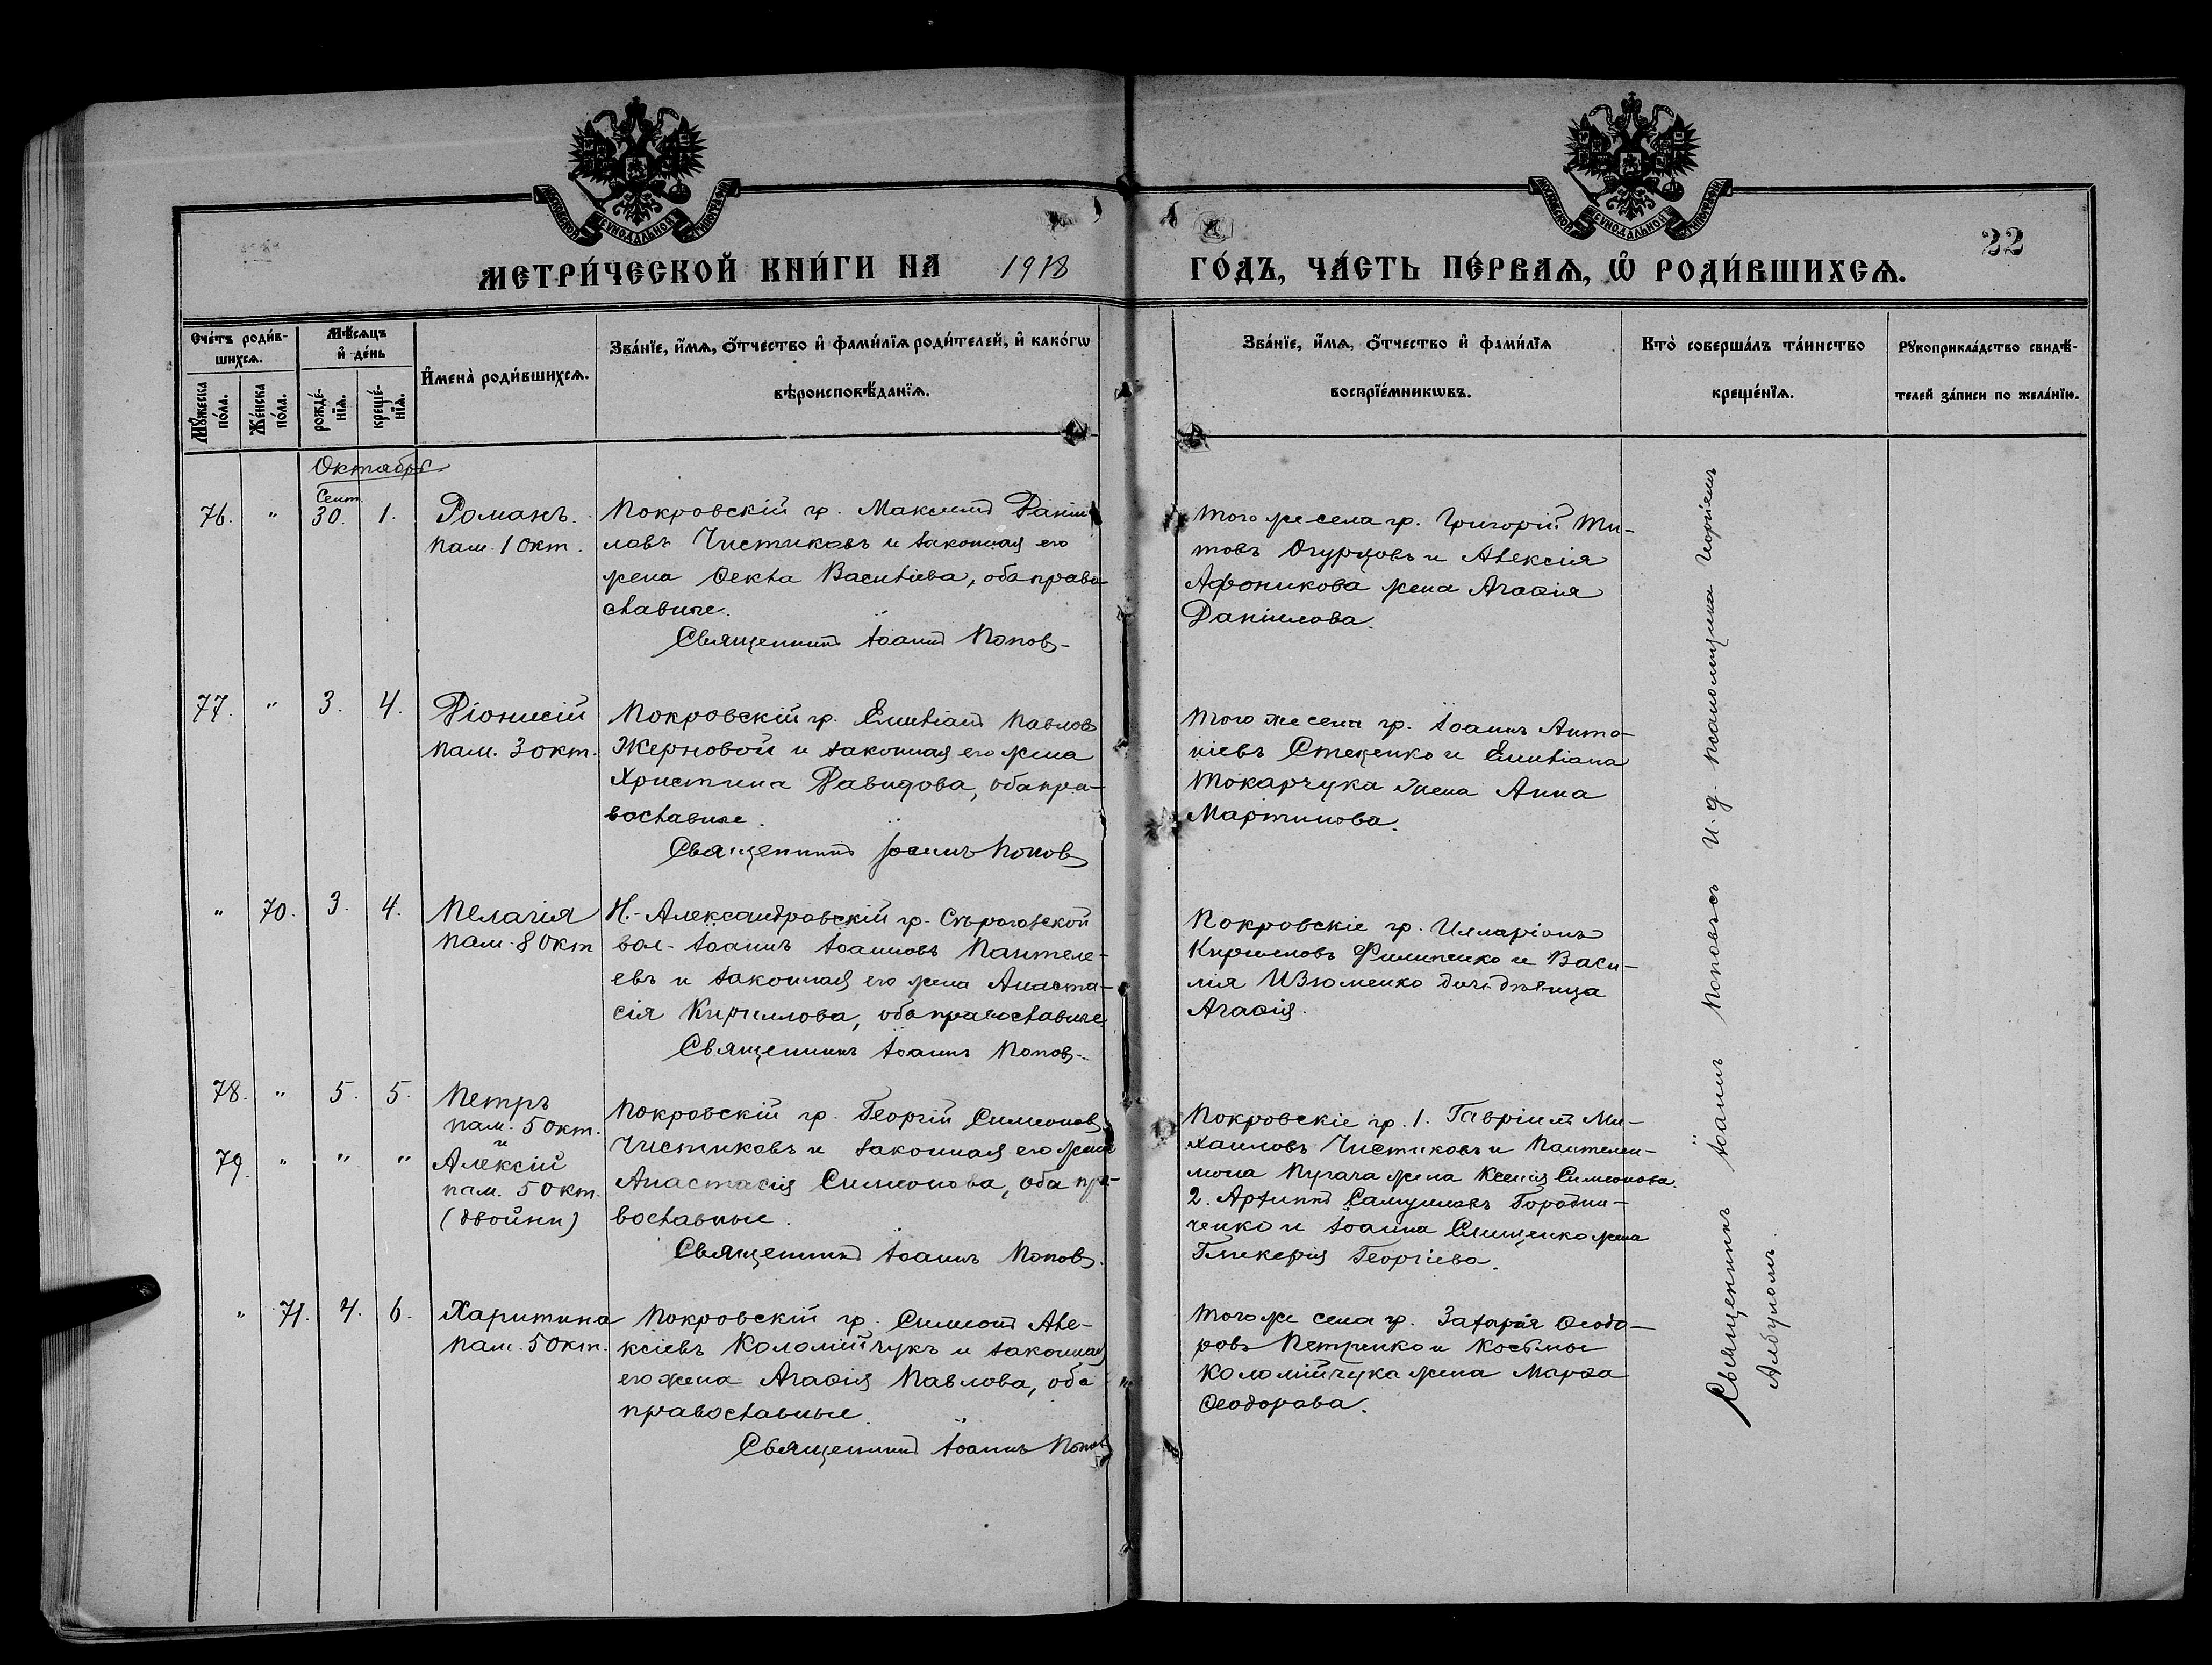 МОСКОВСКОЙ СѴНОДАЛЬНОЙ ТИПОГРАФІИ
МОСКОВСКОЙ СѴНОДАЛЬНОЙ ТИПОГРАФІИ
МЕТРИ́ЧЕСКОЙ КНИ́ГИ НА 1918 ГО́ДЪ, ЧА́СТЬ ПЕ́РВАѦ, Ѡ҆ РОДИ́ВШИХСѦ.
22
Сче́тъ роди́в-
шихсѧ.
Мꙋ́жеска по́ла.
Же́нска по́ла.
Мѣ́сѧцъ
и҆ де́нь
рожде́-
нїѧ.
креще́-
нїѧ.
И҆мена̀ роди́вшихсѧ.
Зва́нїе, и҆́мѧ, ѻ҆́тчество и҆ фами́лїѧ роди́телей, и҆ како́гѡ
вѣроисповѣ́данїѧ.
Зва́нїе, и҆́мѧ, ѻ҆́тчество и҆ фами́лїѧ
воспрїе́мникѡвъ.
Кто̀ соверша́лъ та́инство
креще́нїѧ.
Рꙋкоприкла́дство свидѣ́-
телей за́писи по жела́нїю.
Октябрь
76. " Сент. 30. 1.
Романъ.
пам. 1 Окт.
Покровскій гр. Максимъ Даніи
ловъ Чистиковъ и законная его
жена Ѳекла Васильева, оба право-
славные.
Священникъ Іоаннъ Попов
Того же села гр. Григорій Ти-
товъ Огурцовъ и Алексія
Афоникова жена Агаѳія
Даніилова.
77. " 3. 4.
Діонисій
пам. 3 окт.
Покровскій гр. Емиліанъ Павлов
Жерновой и законная его жена
Христина Давидова, оба пра-
вославные.
Священникъ Іоаннъ Попов
Того же села гр. Іоаннъ Анто-
ніевъ Стеценко и Емиліана
Токарчука жена Анна
Мартинова.
" 70. 3. 4.
Пелагія
пам. 8 Окт
Н.-Александровскій гр.
вол. Іоаннъ Іоанновъ Пантеле-
евъ и законная его жена Анаста-
сія Кириллова, оба православные
Священникъ Іоаннъ Попов
Покровскіе гр. Илларіонъ
Кирилловъ Филипенко и Васи-
лія Изюменко дочь дѣвица
Агаѳія.
78. " 5. 5.
Петръ
пам. 5 Окт.
и
79. " " "
Алексій
пам. 5 Окт.
(двойни)
Покровскій гр. Георгій Симеонов
Чистиковъ и законная его жена
Анастасія Симеонова, оба пра-
вославные.
Священникъ Іоаннъ Попов.
Покровскіе гр. 1. Гавріилъ Ми-
хаиловъ Чистиковъ и Пантелеи-
мона Пугача жена Ксенія Симеонова.
2. Архиппъ Самуиловъ Бородни-
ченко и Іоанна жена
Гликерія Георгіева.
" 71. 4. 6.
Харитина
пам. 5 Окт.
Покровскій гр. Симеонъ Але-
ксіевъ Коломійчукъ и законная
его жена Агаѳія Павлова, оба
православные.
Священникъ Іоаннъ Попов
Того же села гр. Захарія Ѳеодо-
ровъ Петренко и Косьмы
Коломійчука жена Марѳа
Ѳеодорова.
Священникъ Іоаннъ Поповъ съ И. д. псаломщика Георгіемъ
Албуломъ.